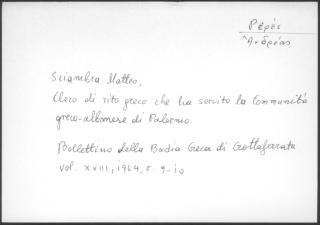 Ρερές
Ἀνδρέας
Sciambra Matteo,
Clero di rito greco che ha servito la Comunità
greco-albanese di Palermo.
Bollettino della Badia Greca di Grottaferrata
vol. XVIII, 1964, σ. 9-10